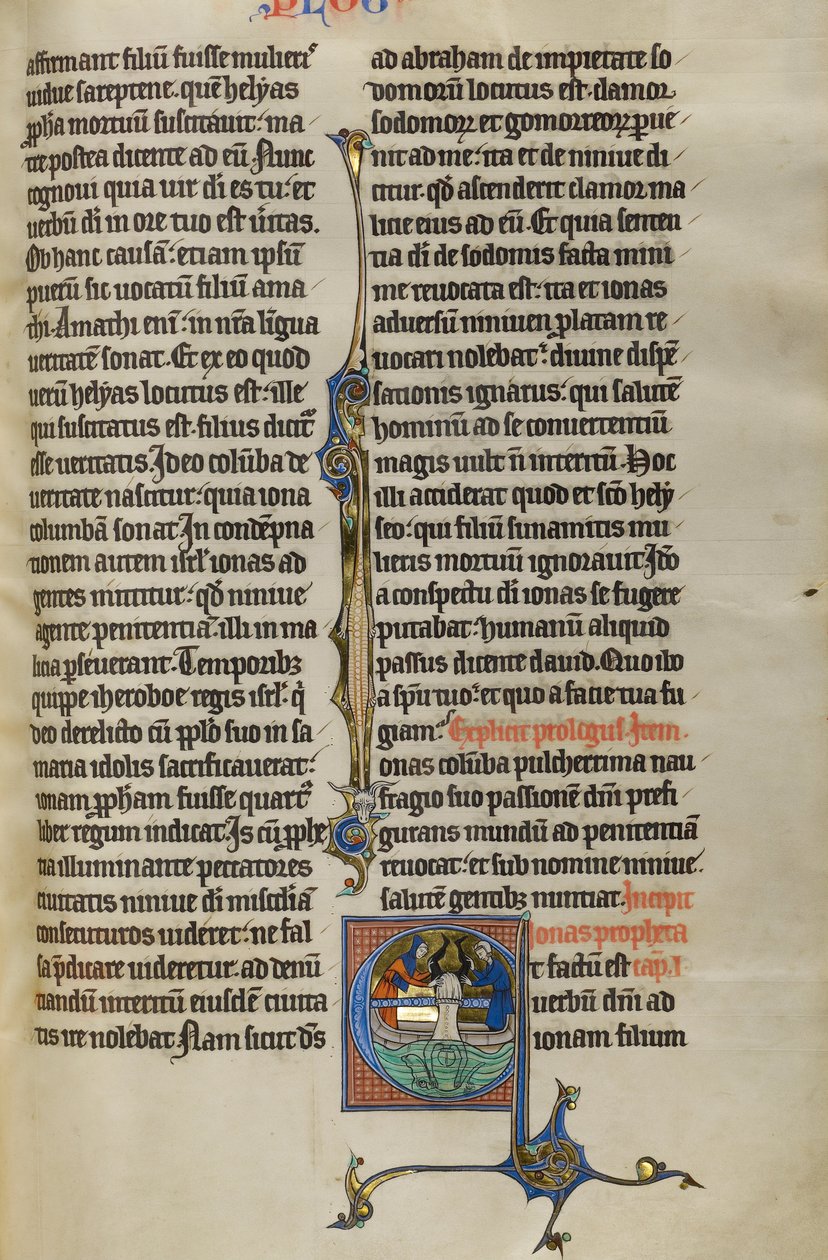 PLOG
affirmant filiũ fuisse mulieris
uidue sareptene. quẽ helyas
ꝓpha mortuũ suscitauit: ma
tre postea dicente ad eũ. Nunc
cognoui quia uir dĩ es tu: et
uerbũ dĩ in ore tuo est ũitas.
Ob hanc causã: etiam ipsũ
puerũ sic uocatũ filiũ ama
thi. Amathi enĩ: in nr̃a lĩgua
ueritatẽ sonat. Et ex eo quod
uerũ helyas locutus est: ille
qui suscitatus est. filius dicit̃
esse ueritatis. Ideo colũba de
ueritate nascitur: quia iona
columbã sonat. In condẽpna
tionem autem isrl̃ ionas ad
gentes mittitur: qd̃ niniue
agente penitentiã. illi in ma
licia ꝑseuerant. Temporibꝫ
quippe iheroboe regis isrl̃. q̃
deo derelicto cũ ppl̃o suo in sa
maria idolis sacrificauerat:
ionam ꝓph̃am fuisse quart̃
liber regum indicat. Is cũ ꝓphe
tia illuminante peccatores
ciuitatis niniue dĩ misc̃diã
consecuturos uideret: ne fal
sa p̃dicare uideretur. ad denũ
tiandũ interitũ eiusdẽ ciuita
tis ire nolebat. Nam sicut dñs
ad abraham de impietate so
domorũ locutus est. clamor
sodomoꝝ et gomorreoꝝ ꝑue
nit ad me: ita et de niniue di
citur. qd̃ ascenderit clamor ma
licie eius ad eũ. Et quia senten
tia dĩ de sodomis facta mini
me reuocata est: ita et ionas
aduersũ niniuen ꝓlatam re
uocari nolebat: diuine dispẽ
sationis ignarus: qui salutẽ
hominũ ad se conuertentiũ
magis uult ñ interitũ. Hoc
illi acciderat quod et sc̃o hely
seo: qui filiũ sunamitis mu
lieris mortuũ ignorauit. Id̃o
a conspectu dĩ ionas se fugere
putabat: humanũ aliquid
passus dicente dauid. Quo ibo
a sp̃u tuo: et quo a facie tua fu
giam. Explicit prologus. Item.
Ionas colũba pulcherrima nau
fragio suo passionẽ dñi prefi
gurans mundũ ad penitentiã
reuocat: et sub nomine niniue.
salutẽ gentibꝫ nuntiat. Incipit
Ionas propheta
Et factũ est cap̃. I
uerbũ dñi ad
ionam filium